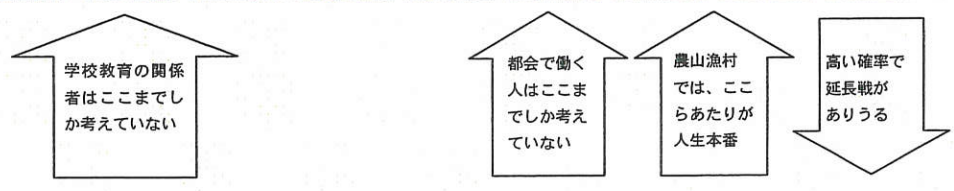 学校教育の関係
者はここまでし
か考えていない
都会で働く
人はここま
でしか考え
ていない
農山漁村
では、ここ
らあたりが
人生本番
高い確率で
延長戦が
ありうる